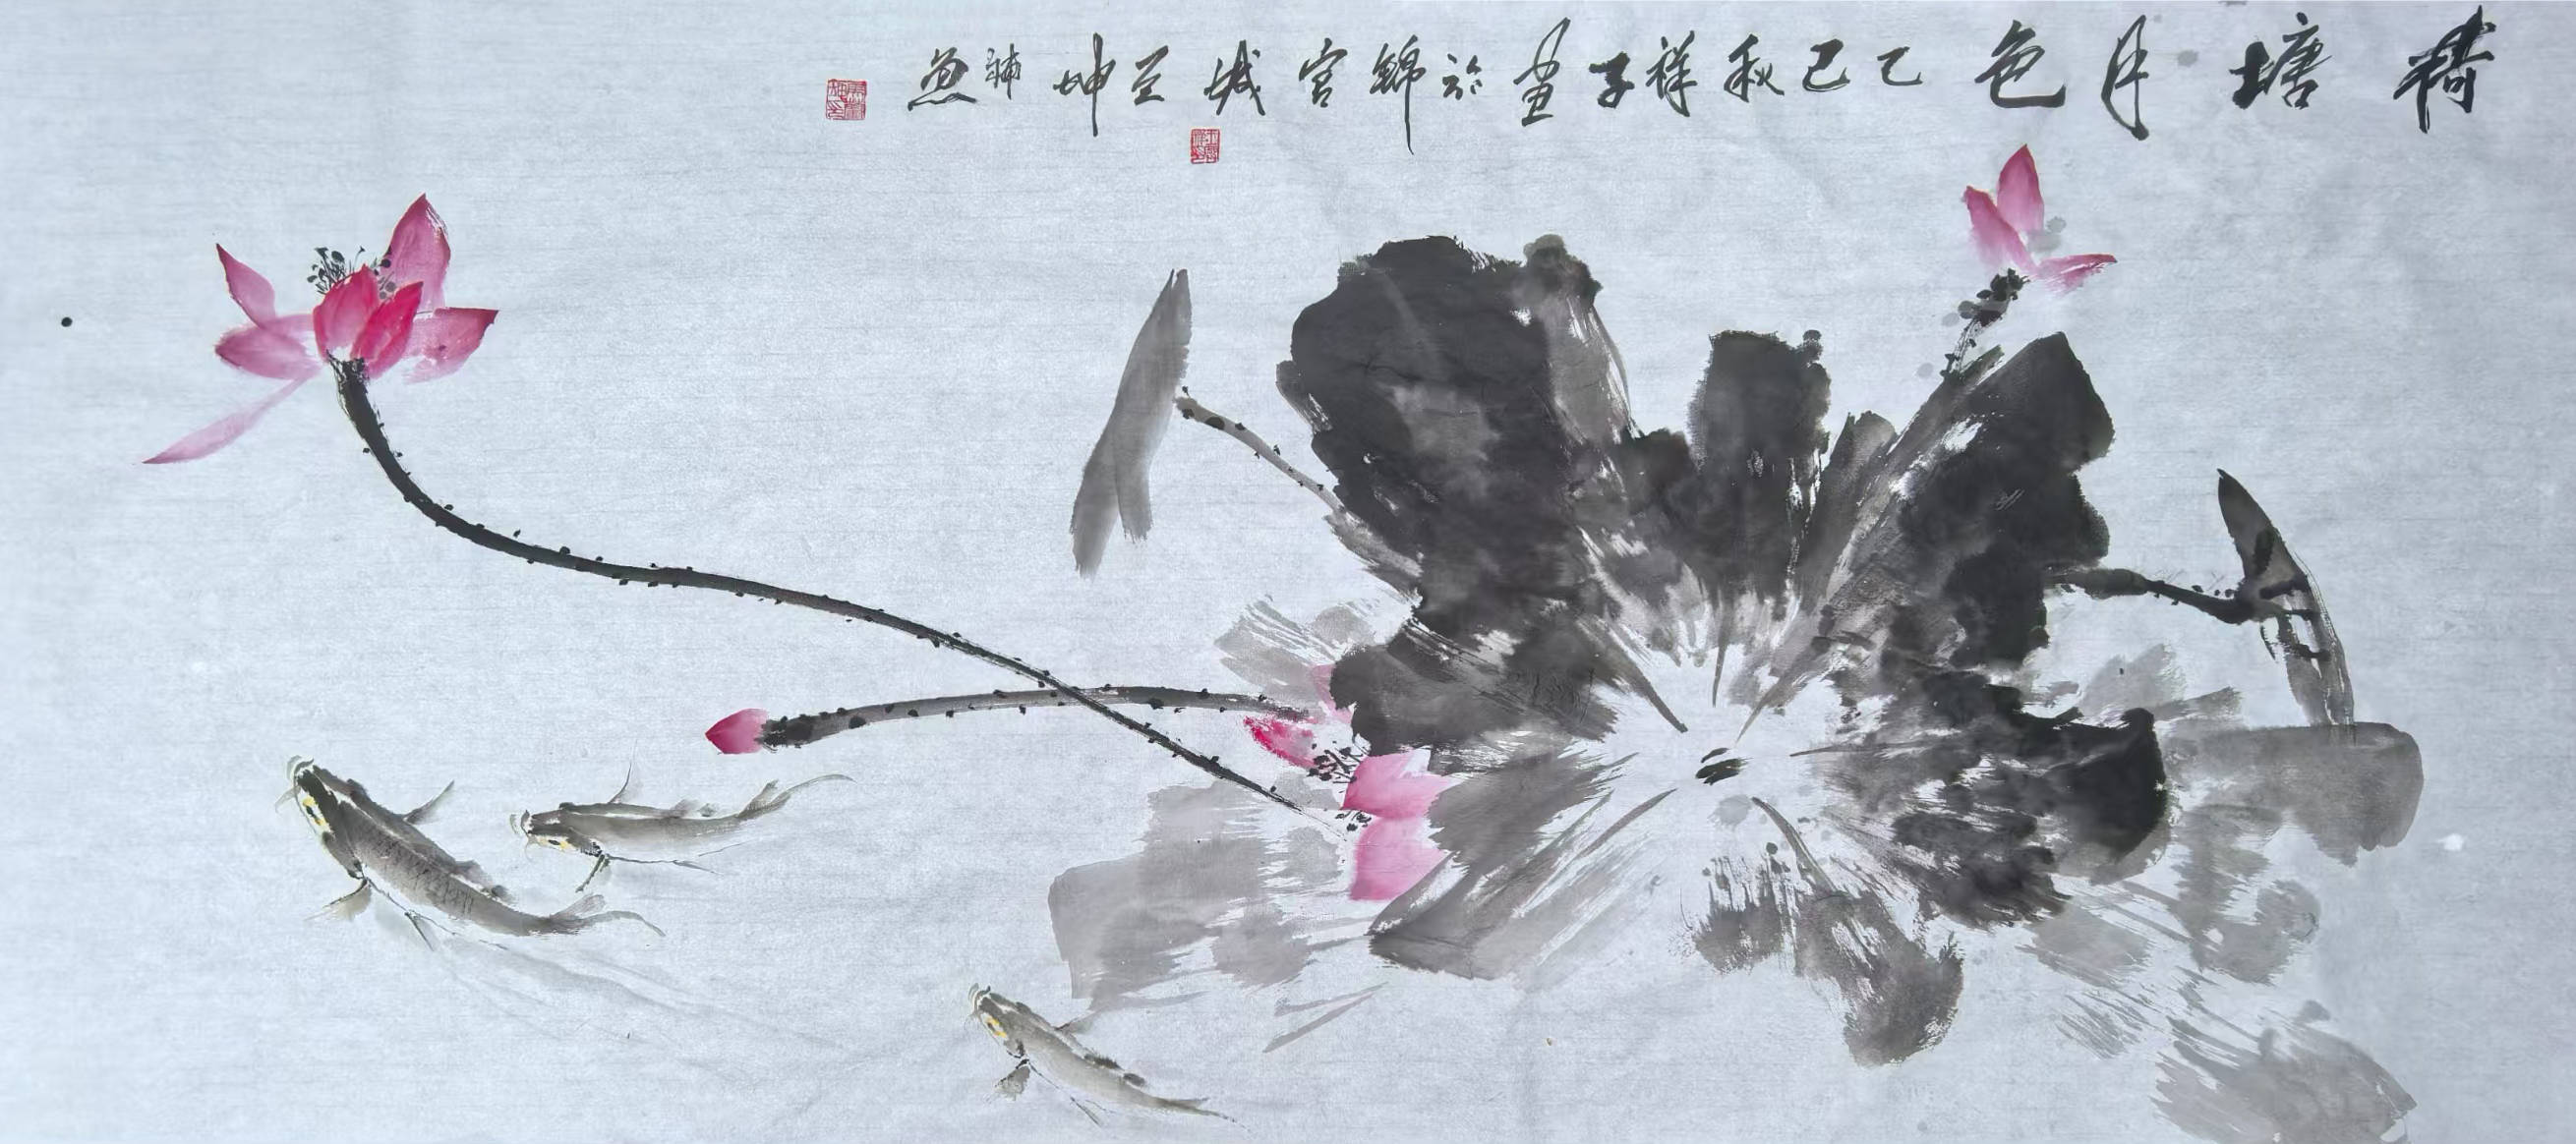 荷塘月色 乙巳秋祥子画於锦官城 至坤補魚